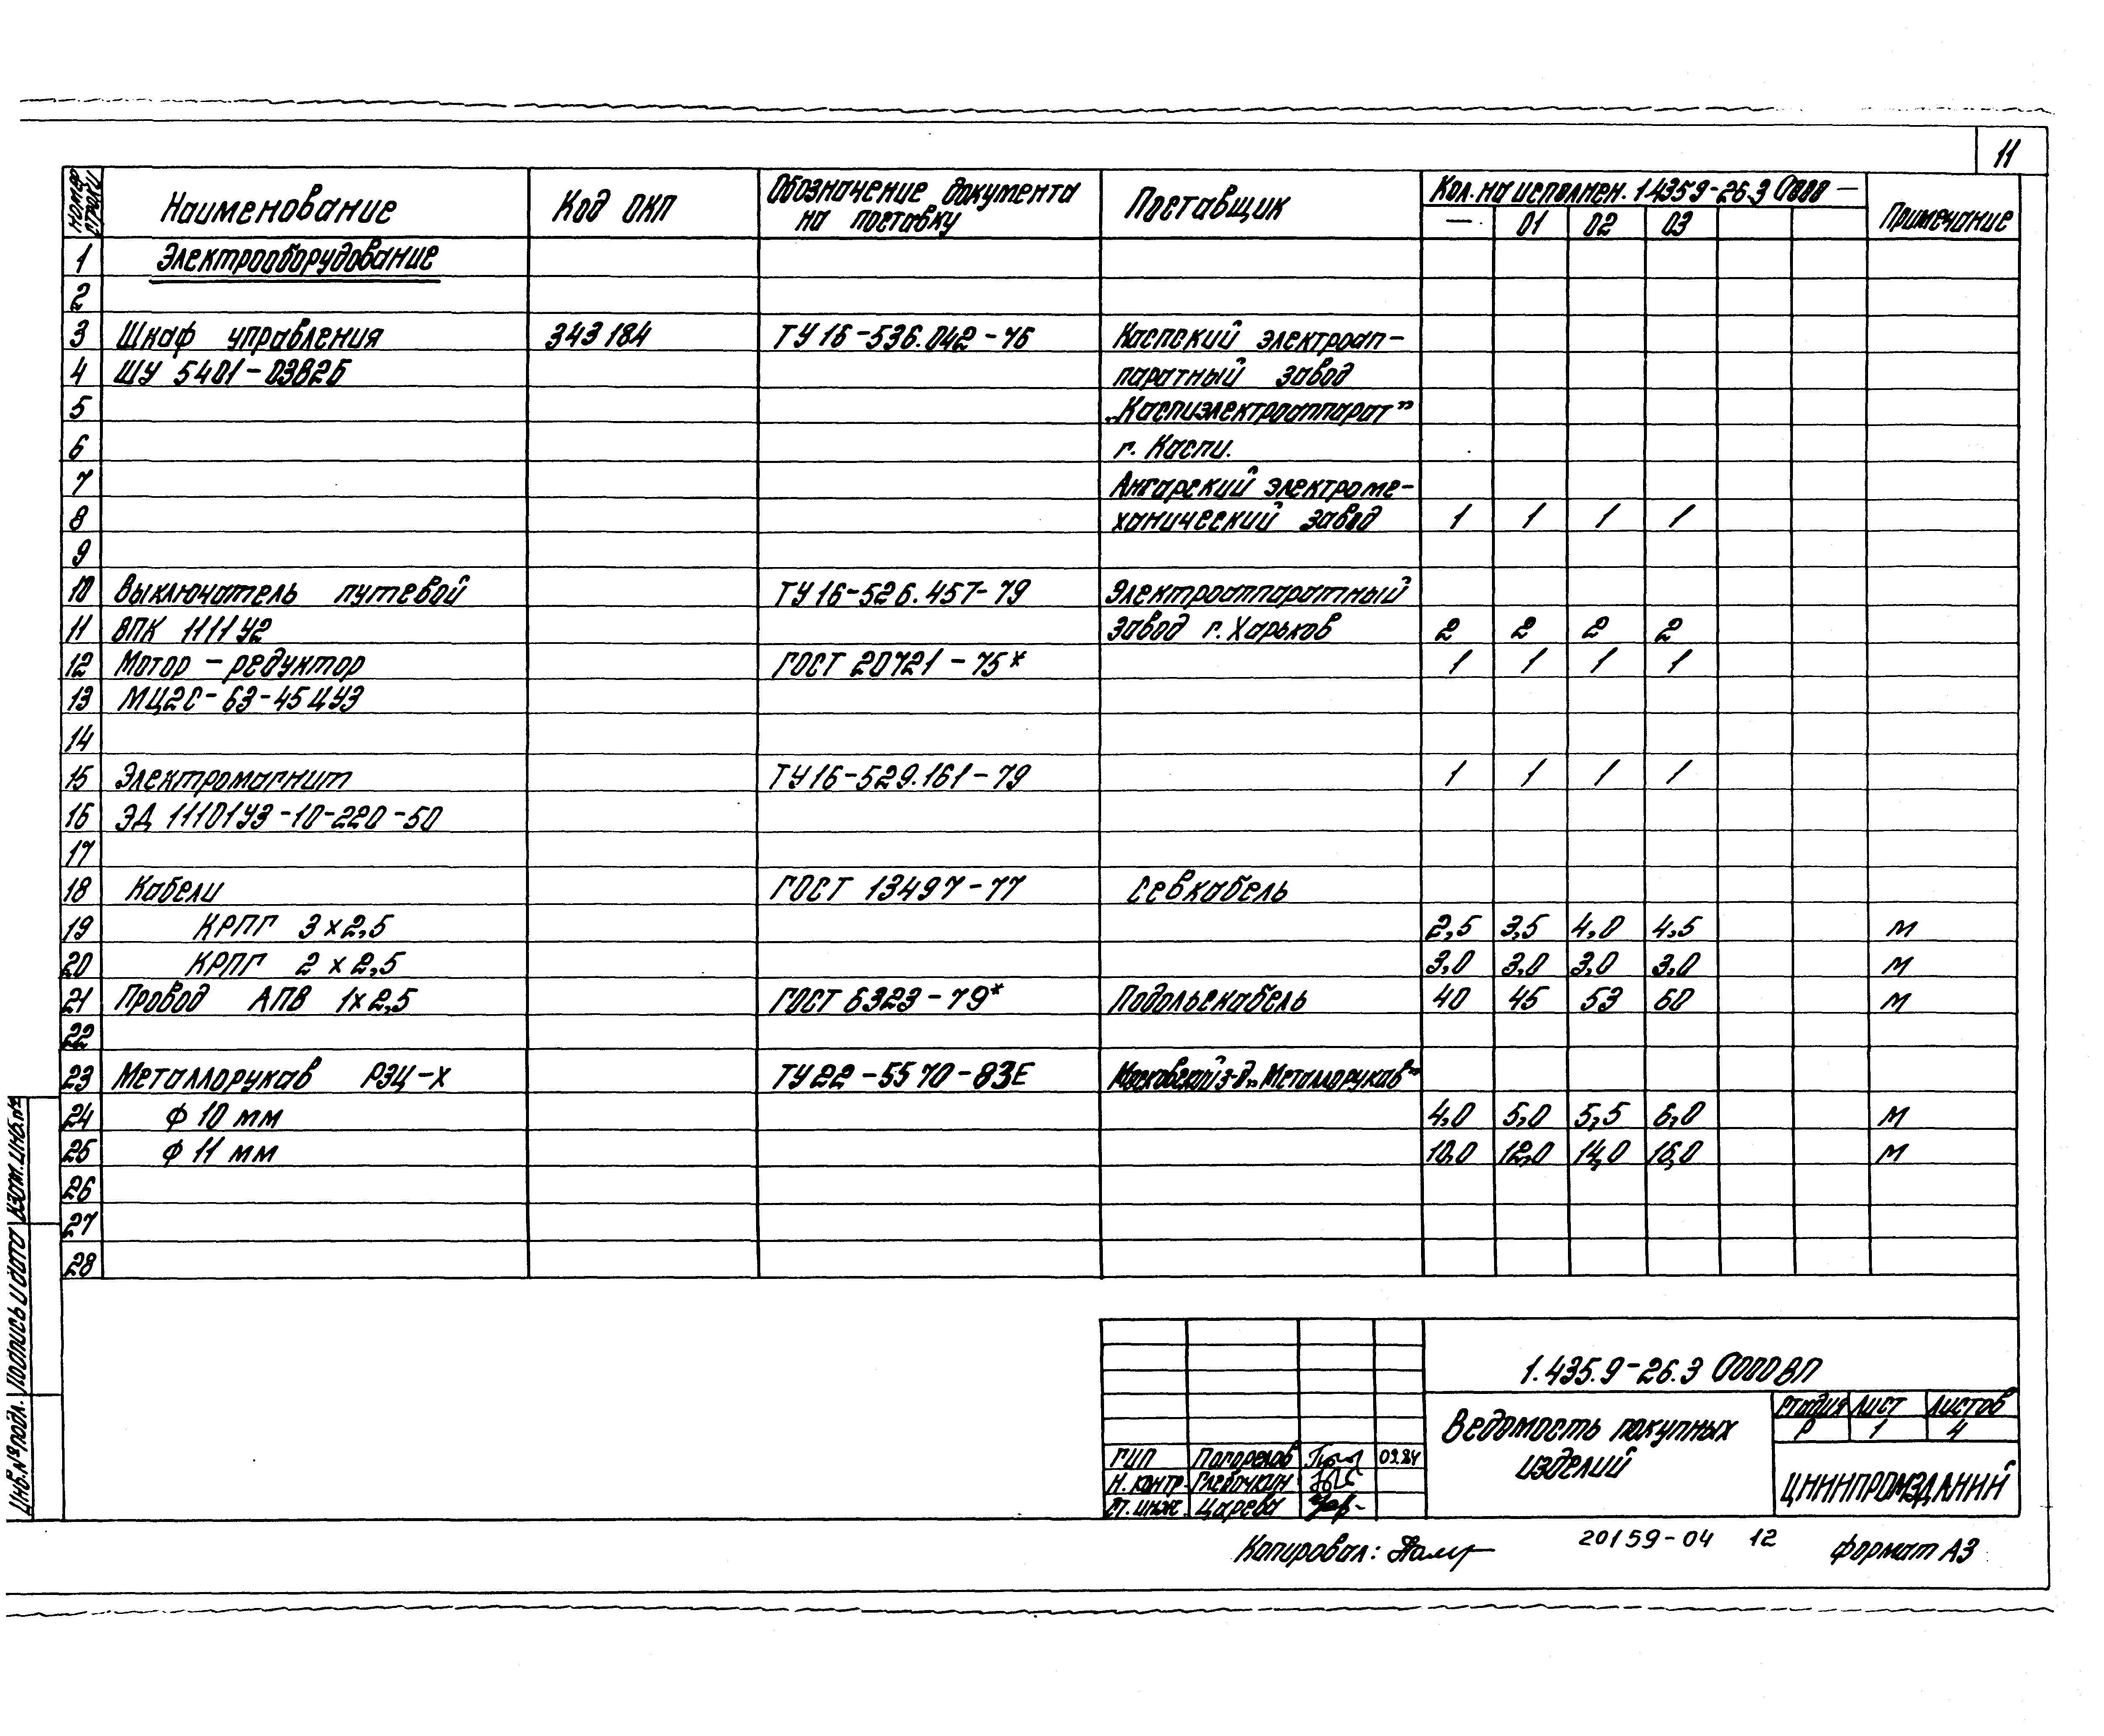 11
Номер строки Наименование Код ОКП Обозначение документа на поставку Поставщик Кол. на исполнен. 1.435.9-26.3 0000 — Примечание
— 01 02 03
1 Электрооборудование
2
3 Шкаф управления 343184 ТУ 16-536.042-76 Каспский электроап-
4 ШУ 5401-03В2Б паратный завод
5 „Каспиэлектроаппарат”
6 г. Каспи.
7 Ангарский электроме-
8 ханический завод 1 1 1 1
9
10 Выключатель путевой ТУ16-526.457-79 Электроаппаратный
11 ВПК 1111У2 завод г. Харьков 2 2 2 2
12 Мотор-редуктор ГОСТ 20721-75* 1 1 1 1
13 МЦ2С-63-45ЦУ3
14
15 Электромагнит ТУ16-529.161-79 1 1 1 1
16 ЭД 11101У3-10-220-50
17
18 Кабели ГОСТ 13497-77 Севкабель
19 КРПГ 3х2,5 2,5 3,5 4,0 4,5 м
20 КРПГ 2х2,5 3,0 3,0 3,0 3,0 м
21 Провод АПВ 1х2,5 ГОСТ 6323-79* Подольскабель 40 45 53 60 м
22
23 Металлорукав РЗЦ-Х ТУ22-5570-83Е Московский з-д „Металлорукав”
24 Ф 10 мм 4,0 5,0 5,5 6,0 м
25 Ф 11 мм 10,0 12,0 14,0 16,0 м
26
27
28
Инв.№ подл. Подпись и дата Взам.инв.№
1.435.9-26.3 0000ВП
Ведомость покупных
изделий
Стадия Лист Листов
Р 1 4
ГИП Погорелов 09.84
Н. контр. Глебочкин
Ст. инж. Царева
ЦНИИПРОМЗДАНИЙ
Копировал: 20159-04 12 Формат А3